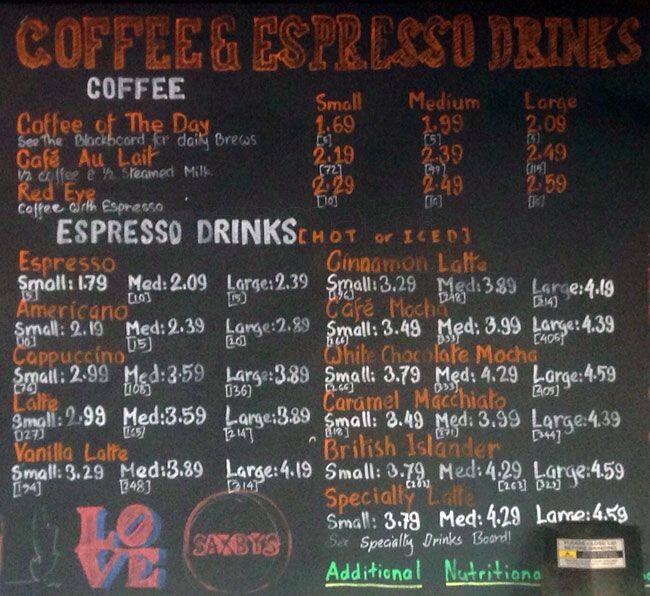 COFFEE & ESPRESSO DRINKS
COFFEE
Small Medium Large
Coffee of The Day 1.69 1.99 2.09
See The Blackboard for daily Brews [5] [5] [5]
Café Au Lait 2.19 2.39 2.49
1/2 coffee & 1/2 Steamed Milk [72]
Red Eye 2.29 2.49 2.59
Coffee with Espresso [10] [10] [10]
ESPRESSO DRINKS [HOT or ICED]
Espresso
Small: 1.79 Med: 2.09 Large: 2.39
[5] [10] [15]
Americano
Small: 2.19 Med: 2.39 Large: 2.89
[10] [15] [20]
Cappuccino
Small: 2.99 Med: 3.59 Large: 3.89
[76] [108] [136]
Latte
Small: 2.99 Med: 3.59 Large: 3.89
[127] [165] [214]
Vanilla Latte
Small: 3.29 Med: 3.89 Large: 4.19
[194] [248] [314]
Cinnamon Latte
Small: 3.29 Med: 3.89 Large: 4.19
[248] [314]
Café Mocha
Small: 3.49 Med: 3.99 Large: 4.39
[266] [333] [405]
White Chocolate Mocha
Small: 3.79 Med: 4.29 Large: 4.59
[266] [333] [405]
Caramel Macchiato
Small: 3.49 Med: 3.99 Large: 4.39
[218] [271] [344]
British Islander
Small: 3.79 Med: 4.29 Large: 4.59
[263] [323]
Specialty Latte
Small: 3.79 Med: 4.29 Large: 4.59
See Specialty Drinks Board!
LOVE
SAXBYS
Additional Nutritiona